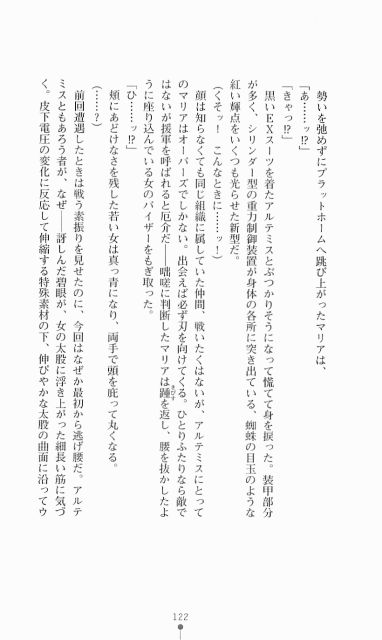 勢いを弛めずにプラットホームへ跳び上がったマリアは、
「あ……ッ!?」
「きゃっ!?」
黒いＥＸスーツを着たアルテミスとぶつかりそうになって慌てて身を捩った。装甲部分
が多く、シリンダー型の重力制御装置が身体の各所に突き出ている、蜘蛛の目玉のような
紅い輝点をいくつも光らせた新型だ。
（くそッ！　こんなときに……ッ！）
顔は知らなくても同じ組織に属していた仲間、戦いたくはないが、アルテミスにとって
のマリアはオーバーズでしかない。出会えば必ず刃を向けてくる。ひとりふたりなら敵で
はないが援軍を呼ばれると厄介だ――咄嗟に判断したマリアは踵を返し、腰を抜かしたよ
うに座り込んでいる女のバイザーをもぎ取った。
「ひ……ッ!?」
頬にあどけなさを残した若い女は真っ青になり、両手で頭を庇って丸くなる。
（……？）
前回遭遇したときは戦う素振りを見せたのに、今回はなぜか最初から逃げ腰だ。アルテ
ミスともあろう者が、なぜ――訝しんだ碧眼が、女の太股に浮き上がった細長い筋に気づ
く。皮下電圧の変化に反応して伸縮する特殊素材の下、伸びやかな太股の曲面に沿ってウ
122